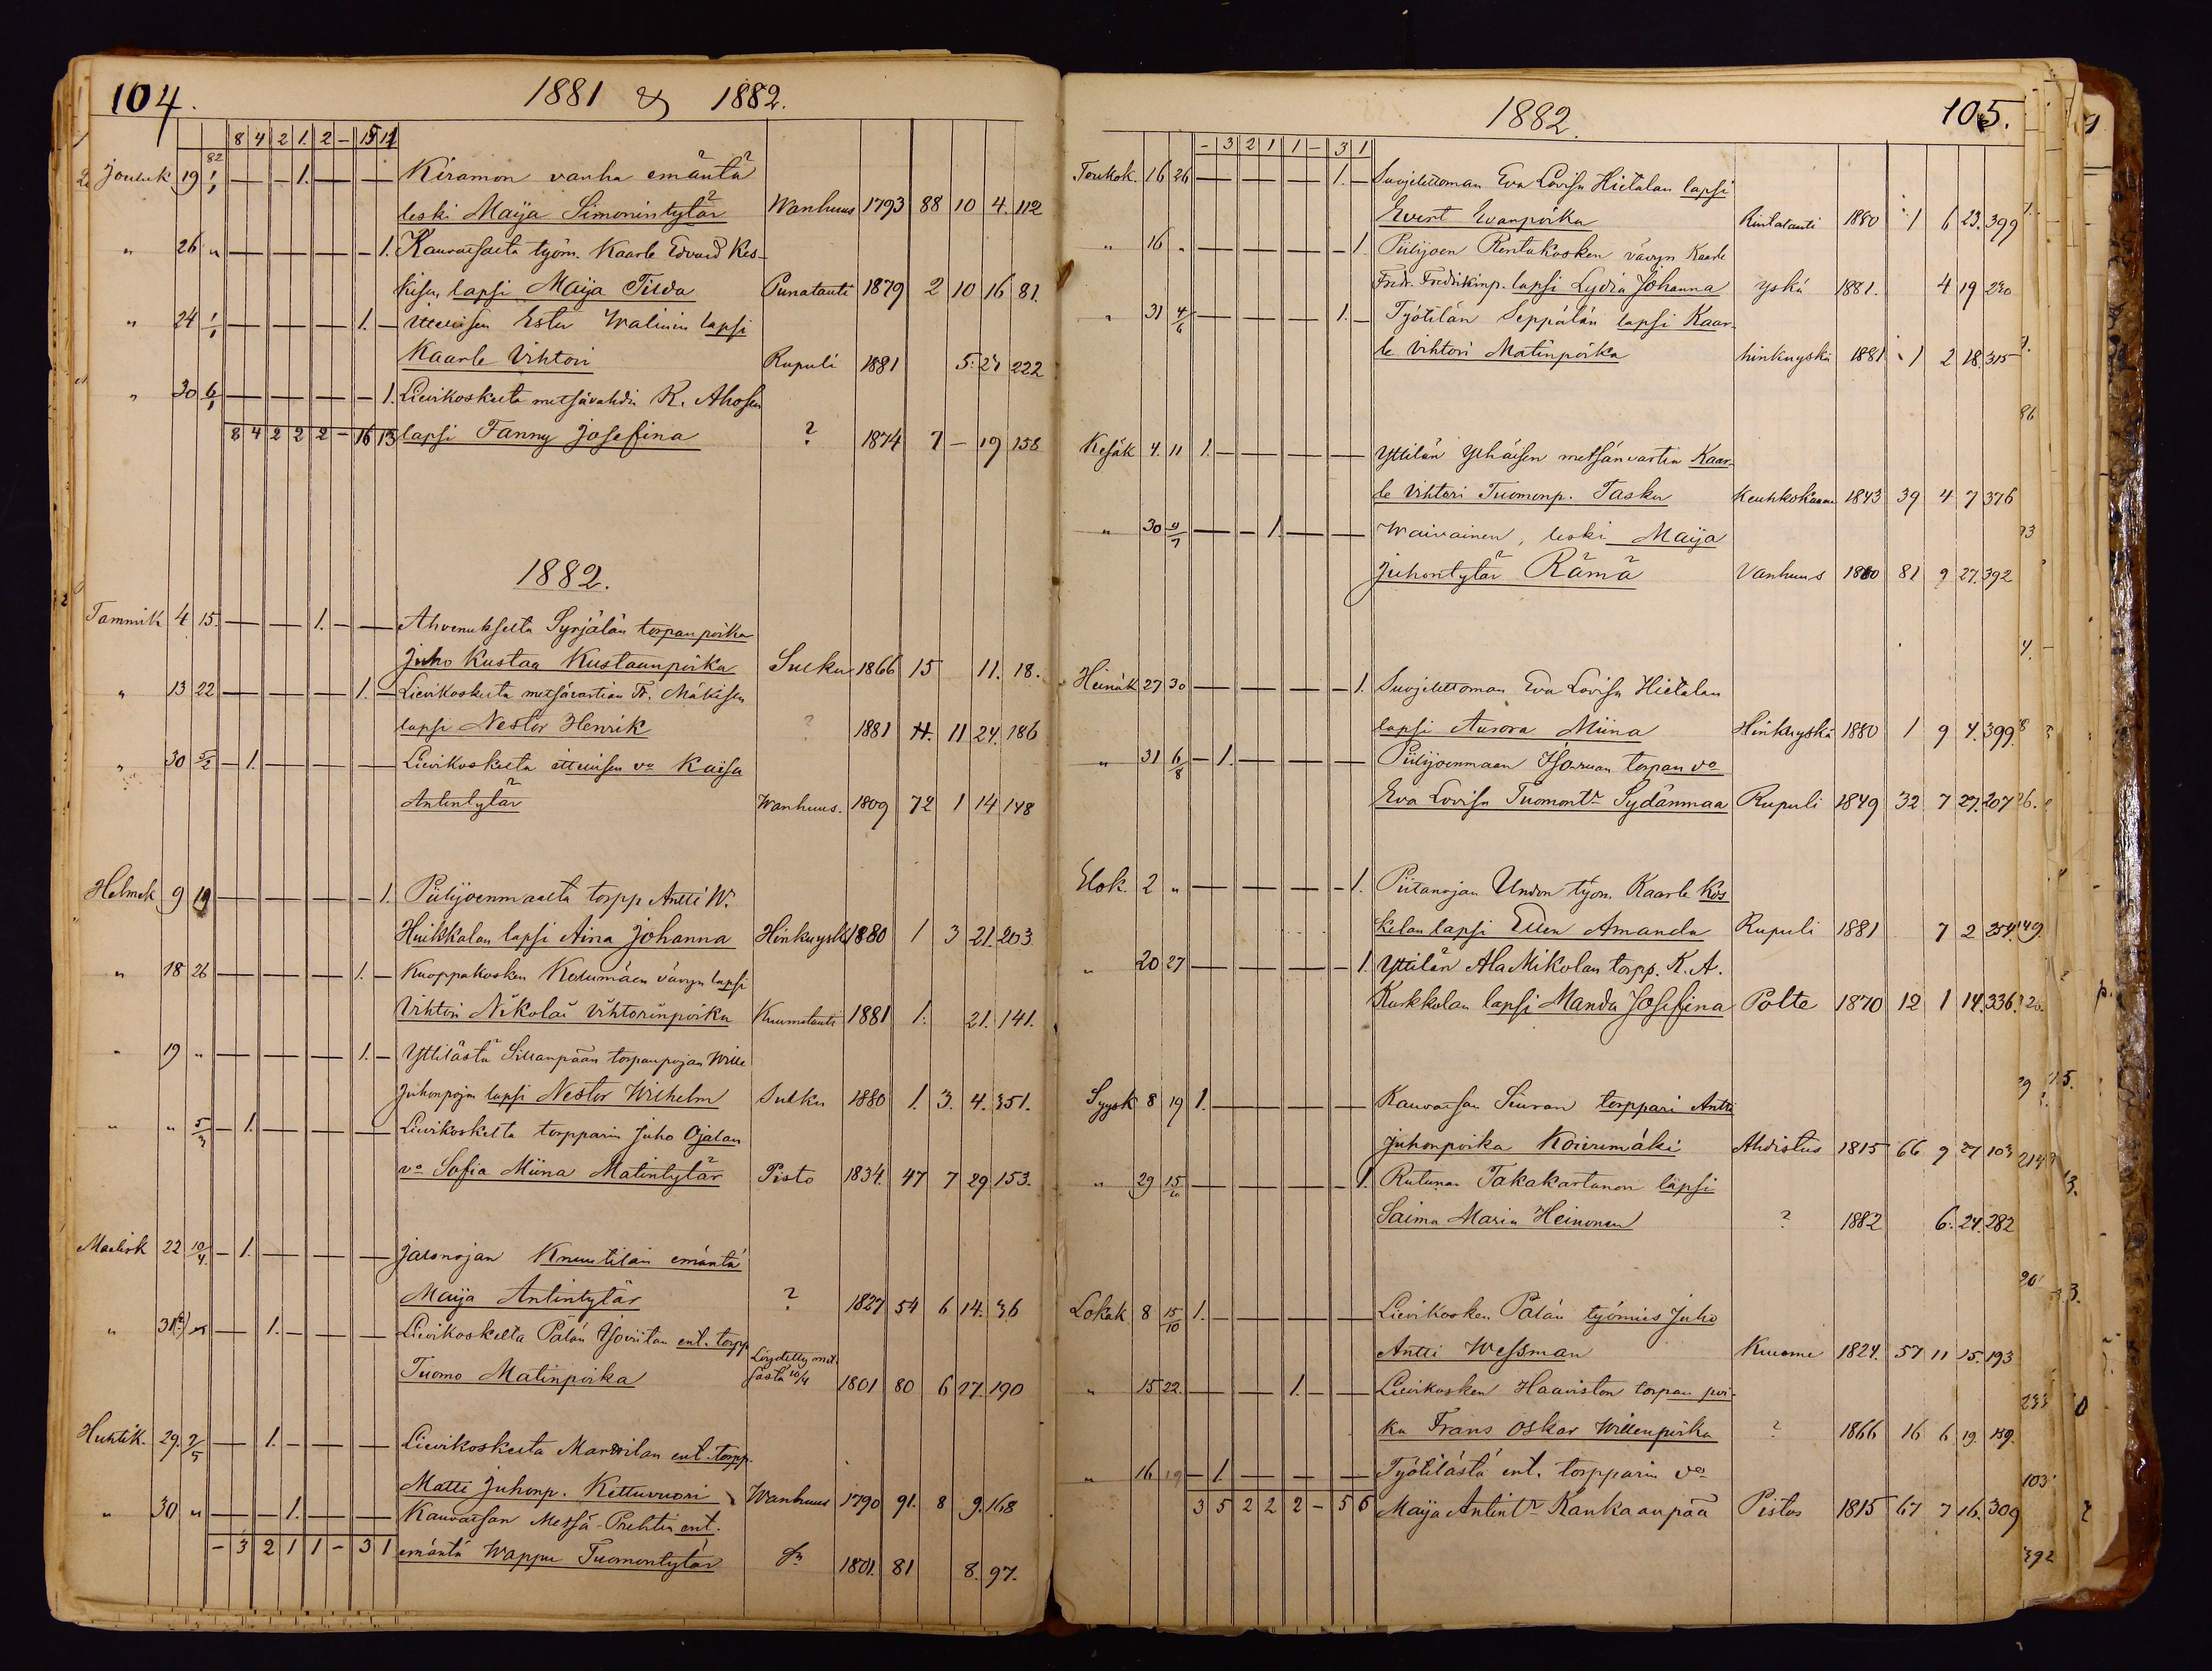 104.
1881 & 1882.
8 4 2 1. 2 - 15 12
Jouluk 19 1/1 82 1. Kiramon vanha emäntä
leski Maija Simonintytär Wanhuus 1793 88 10 4. 112
" 26 " 1. Kauvatsalta työm. Kaarle Edvard Kes-
kisen lapsi Maija Tilda Punatauti 1879 2 10 16 81.
" 24 1/1 1. Itellisen Ester Walinin lapsi
Kaarle Vihtori Rupuli 1881 5. 27 222
" 30 6/1 1. Lievikoskelta metsävahdin K. Ahosen
8 4 2 2 2 - 16 13 lapsi Fanny Josefina ? 1874 7 - 19 158
1882.
Tammik 4 15. 1. Ahvenukselta Syrjälän torpan poika
Juho Kustaa Kustaanpoika Sulku 1866 15 11. 18.
" 13 22 1. Lievikoskelta metsävartian Fr. Mäkisen
lapsi Nestor Henrik ? 1881 11 24. 186
" 30 5/2 1. Lievikoskelta itellisen vo Kaisa
Antintytär Wanhuus. 1809 72 1 14 148
Helmik 9 19 1. Piilijoenmaalta torpp Antti W.
Huikkalan lapsi Aina Johanna Hinkuyskä 1880 1 3 21. 203
" 18 26 1. Kuoppakosken Kedumäen vävyn lapsi
Vihtori Nikolai Vihtorinpoika Kuumetauti 1881 1. 21. 141.
" 19 " 1. Yttilästä Sillanpään torpanpojan Wille
Juhonpojan lapsi Nestor Wilhelm Sulku 1880 1. 3. 4. 351.
" " 5/3 1. Lievikoskelta torpparin Juho Ojalan
vo Sofia Miina Matintytär Pisto 1834. 47 7 29 153.
Maalisk 22 10/4. 1. Jalonojan Knuutilan emäntä
Maija Antintytär ? 1827 54 6 14. 36
" 31 1. Lievikoskelta Pälän Isoviitan ent. torpp
Tuomo Matinpoika Löydetty met-
sästä 10/4 1801 80 6 27. 190
Huhtik. 29. 7/5 1. Lievikoskelta Mandilan ent. torpp.
Matti Juhonp. Kettuvuori Wanhuus 1790 91. 8 9. 168
" 30 " 1. Kauvatsan Messä-Prehtin ent.
- 3 2 1 1 - 3 1 emäntä Wappu Tuomontytär Sn 1801. 81 8. 97.
1882.
105.
- 3 2 1 1 - 3 1
Toukok. 16 26 1. Suojelettoman Eva Lovisa Hietalan lapsi
Evert Evanpoika Rintatauti 1880 1 6 23. 399
" 16 " 1. Piilijoen Rentukosken vävyn Kaarle
Fredr. Fredrikinp. lapsi Lydia Johanna Yskä 1881. 4 19 230
" 31 4/6 1. Työtilän Seppälän lapsi Kaar-
le Vihtori Matinpoika hinkuyskä 1881 1 2 18. 315
Kesäk 4. 11 1. Yttilän Ylhäisen metsänvartia Kaar-
le Vihtori Tuomonp. Tasku Keuhkokuume 1843 39 4 7 376
" 30 9/7 1. Waivainen, leski Maija
Juhontytär Rämä Vanhuus 1800 81 9 27. 392
Heinäk 27 30 1. Suojelettoman Eva Lovisa Hietalan
lapsi Aurora Miina Hinkuyskä 1880 1 9 4. 399.
" 31 6/8 1. Piilijoenmaan torpan vo
Eva Lovisa Tuomontr Sydänmaa Rupuli 1849 32 7 27. 207
Elok. 2 " 1. Piitanojan Undon työm. Kaarle Kos
kelan lapsi Ellen Amanda Rupuli 1881 7 2 254.
" 20 27 1. Yttilän AlaMikolan torpp. K. A.
Kurkkalan lapsi Manda Josefina Polte 1870 12 1 14. 336
Syysk 8 19 1. Kauvatsan Siuran torppari Antti
Juhonpoika Koivumäki Ahdistus 1815 66 9 27 103
" 29 15/10 1. Rutunan Takakartanon lapsi
Saima Maria Heinonen ? 1882 6. 24. 282
Lokak 8 15/10 1. Lievikosken Pälän työmies Juho
Antti Wessman Kuume 1824. 57 11 15. 193
" 15 22. 1. Lievikosken Haaviston torpan poi-
ka Frans Oskar Willenpoika ? 1866 16 6 19. 139.
" 16 19 1. Työtilästä ent. torpparin vo
3 5 2 2 2 - 5 6 Maija Antintr Kankaanpää Pistos 1815 67 7 16. 309